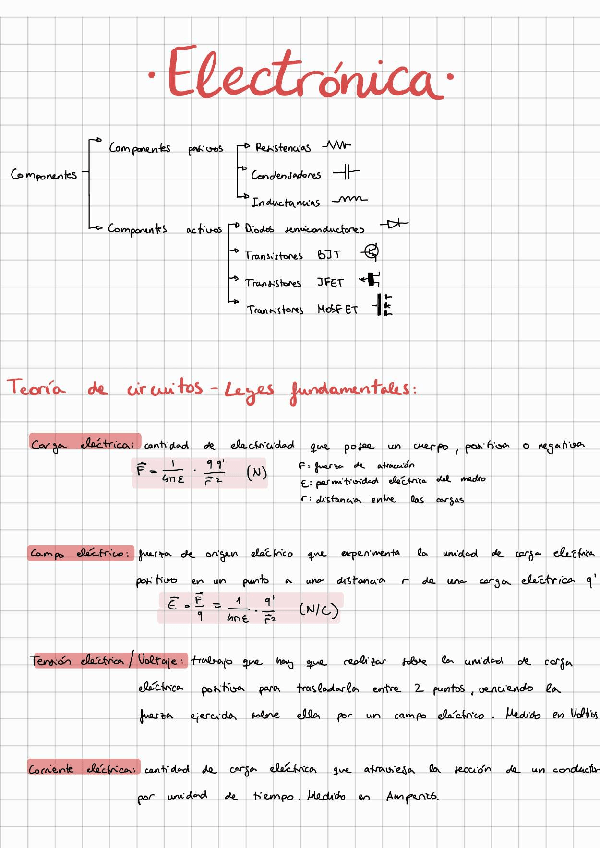 · Electrónica ·
Componentes
Componentes pasivos
Resistencias
Condensadores
Inductancias
Componentes activos
Diodos semiconductores
Transistores BJT
Transistores JFET
Transistores MOSFET
Teoría de circuitos - Leyes fundamentales:
Carga eléctrica: cantidad de electricidad que posee un cuerpo, positiva o negativa
F⃗ = 1/4πε · q q'/r⃗² (N)
F: fuerza de atracción
ε: permitividad eléctrica del medio
r: distancia entre las cargas
Campo eléctrico: fuerza de origen eléctrico que experimenta la unidad de carga eléctrica
positiva en un punto a una distancia r de una carga eléctrica q'
E⃗ = F⃗/q = 1/4πε · q'/r⃗² (N/C)
Tensión eléctrica / Voltaje: trabajo que hay que realizar sobre la unidad de carga
eléctrica positiva para trasladarla entre 2 puntos, venciendo la
fuerza ejercida sobre ella por un campo eléctrico. Medido en Voltios
Corriente eléctrica: cantidad de carga eléctrica que atraviesa la sección de un conductor
por unidad de tiempo. Medido en Amperios.